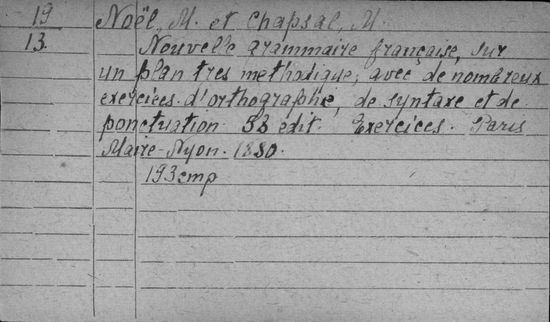 19 Noël, M. et Chapsal, M.
13. Nouvelle grammaire française, sur
un plan tres methodique, avec de nombreux
exercices d'orthographe, de syntaxe et de
ponctuation 53 édit. Exercices. Paris
Maire-Nyon. 1880.
193 стр